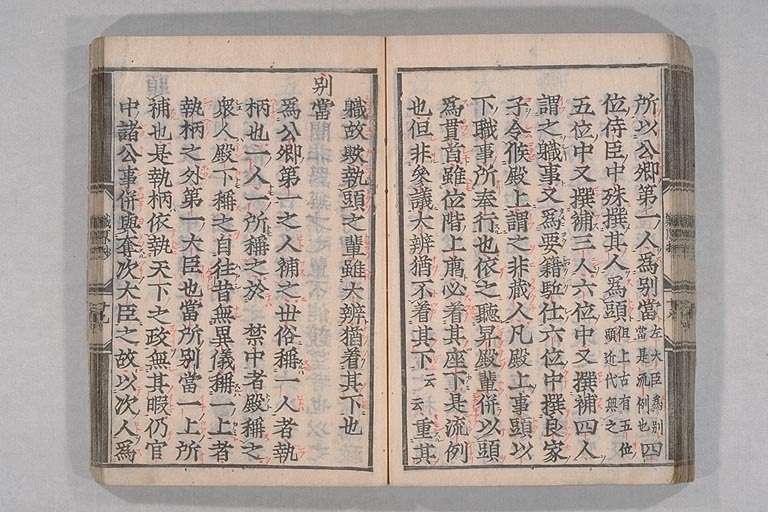 所以公卿第一人為別當左大臣為別當是流例也四
位侍臣中殊撰其人為頭但上古有五位頭近代無之
五位中又撰補三人六位中又撰補四人
謂之職事又為要籍駈仕六位中撰良家
子令候殿上謂之非蔵人凡殿上事頭以
下職事所奉行也依之聴昇殿輩併以頭
為貫首雖位階上臈必着其座下是流例
也但非叅議大辨猶不着其下云云重其
職故歟執頭之輩雖大辨猶着其下也
別當
為公卿第一之人補之世俗稱一人者執
柄也一人一所稱之於禁中者殿稱之
衆人殿下稱之自往昔無異儀稱一上者
執柄之外第一大臣也當所別當一上所
補也是執柄依執天下之政無其暇仍官
中諸公事併與奪次大臣之故以次人為